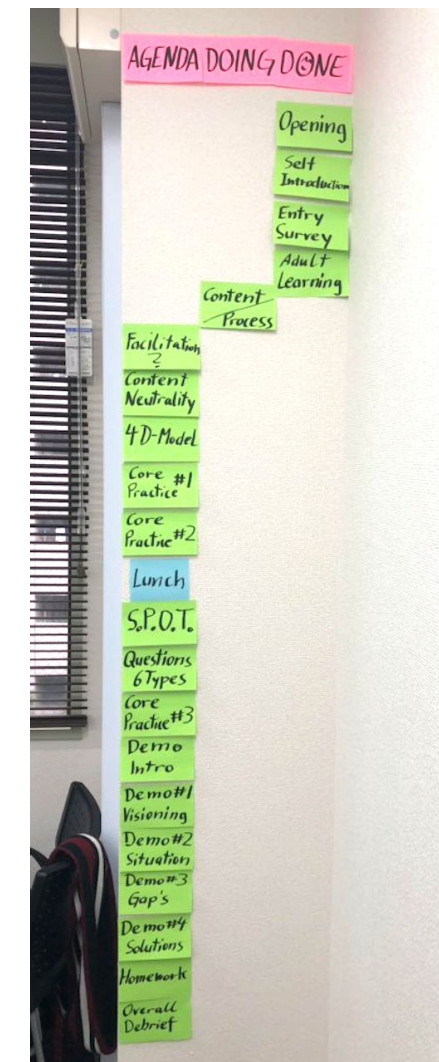 AGENDA DOING DONE
Opening
Self
Introduction
Entry
Survey
Adult
Learning
Content
Process
Facilitation
?
Content
Neutrality
4D-Model
Core #1
Practice
Core
Practice #2
Lunch
S.P.O.T.
Questions
6 Types
Core
Practice #3
Demo
Intro
Demo #1
Visioning
Demo #2
Situation
Demo #3
Gap's
Demo #4
Solutions
Homework
Overall
Debrief